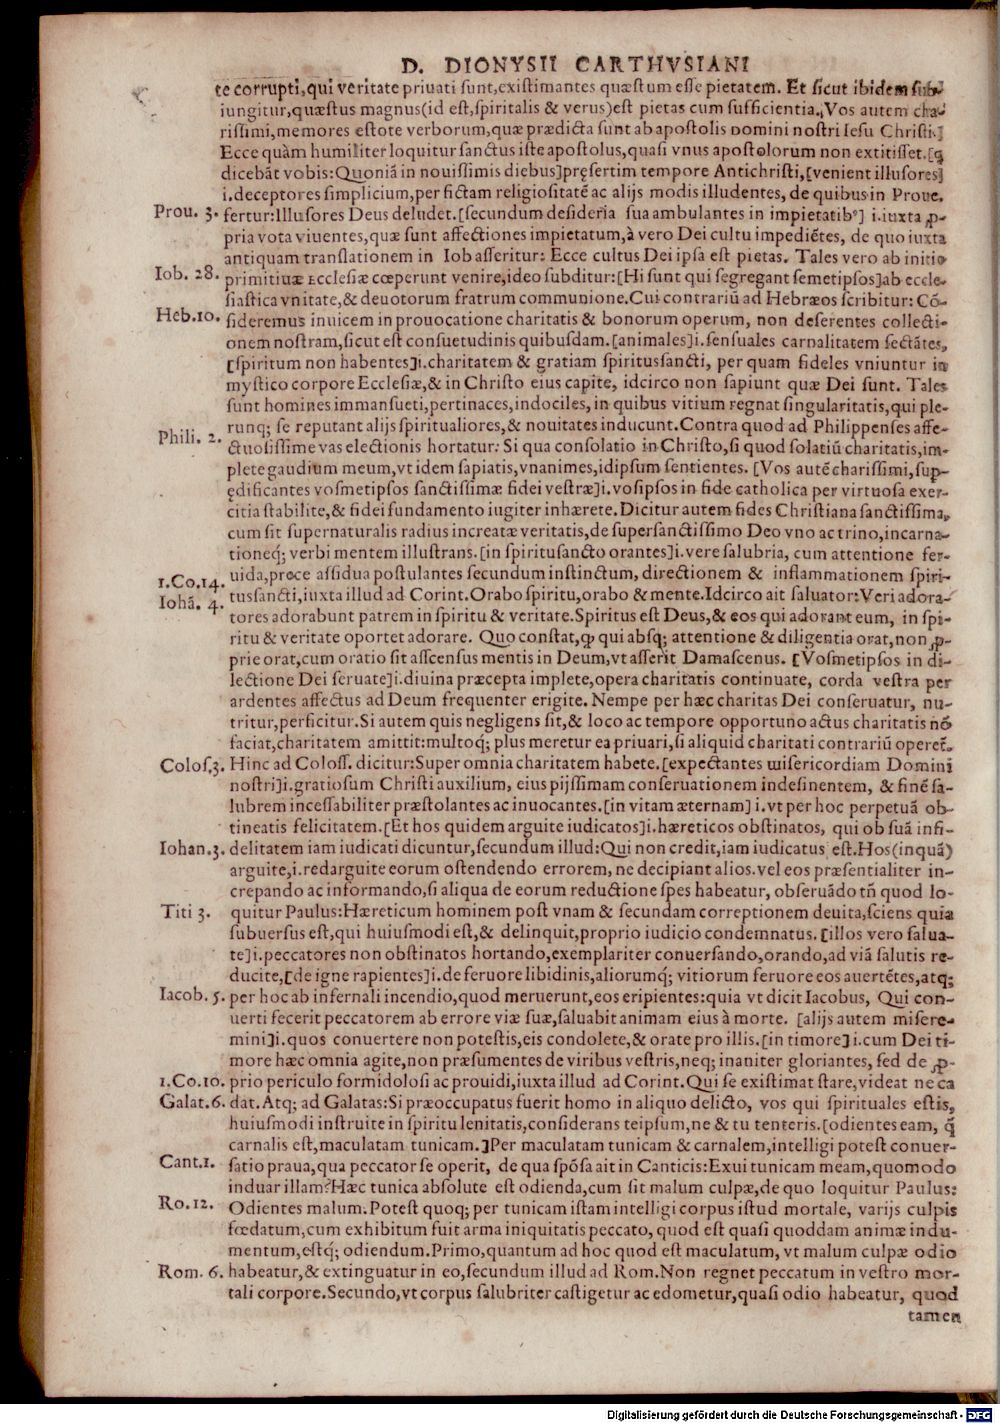 D. DIONYSII CARTHVSIANI
te corrupti, qui veritate priuati sunt, existimantes quæstum esse pietatem. Et sicut ibidem sub-
iungitur, quæstus magnus (id est, spiritalis & verus) est pietas cum sufficientia. Vos autem cha-
rissimi, memores estote verborum, quæ prædicta sunt ab apostolis Domini nostri Iesu Christi.]
Ecce quàm humiliter loquitur sanctus iste apostolus, quasi vnus apostolorum non extitisset. [q
dicebāt vobis: Quoniā in nouissimis diebus] pręsertim tempore Antichristi, [venient illusores]
i. deceptores simplicium, per fictam religiositatē ac alijs modis illudentes, de quibus in Proue.
Prou. 3. fertur: Illusores Deus deludet. [secundum desideria sua ambulantes in impietatibꝰ] i. iuxta ꝓ-
pria vota viuentes, quæ sunt affectiones impietatum, à vero Dei cultu impediētes, de quo iuxta
antiquam translationem in Iob asseritur: Ecce cultus Dei ipsa est pietas. Tales vero ab initio
Iob. 28. primitiuæ Ecclesiæ cœperunt venire, ideo subditur: [Hi sunt qui segregant semetipsos] ab eccle-
siastica vnitate, & deuotorum fratrum communione. Cui contrariū ad Hebræos scribitur: Cō-
Heb. 10. sideremus inuicem in prouocatione charitatis & bonorum operum, non deserentes collecti-
onem nostram, sicut est consuetudinis quibusdam. [animales] i. sensuales carnalitatem sectātes,
[spiritum non habentes] i. charitatem & gratiam spiritussancti, per quam fideles vniuntur in
mystico corpore Ecclesiæ, & in Christo eius capite, idcirco non sapiunt quæ Dei sunt. Tales
sunt homines immansueti, pertinaces, indociles, in quibus vitium regnat singularitatis, qui ple-
runq; se reputant alijs spiritualiores, & nouitates inducunt. Contra quod ad Philippenses affe-
Phili. 2. ctuosissime vas electionis hortatur: Si qua consolatio in Christo, si quod solatiū charitatis, im-
plete gaudium meum, vt idem sapiatis, vnanimes, idipsum sentientes. [Vos autē charissimi, suꝑ-
ędificantes vosmetipsos sanctissimæ fidei vestræ] i. vosipsos in fide catholica per virtuosa exer-
citia stabilite, & fidei fundamento iugiter inhærete. Dicitur autem fides Christiana sanctissima,
cum sit supernaturalis radius increatæ veritatis, de supersanctissimo Deo vno ac trino, incarna-
tioneq; verbi mentem illustrans. [in spiritusancto orantes] i. vere salubria, cum attentione fer-
1. Co. 14. uida, prece assidua postulantes secundum instinctum, directionem & inflammationem spiri-
Iohā. 4. tussancti, iuxta illud ad Corint. Orabo spiritu, orabo & mente. Idcirco ait saluator: Veri adora-
tores adorabunt patrem in spiritu & veritate. Spiritus est Deus, & eos qui adorant eum, in spi-
ritu & veritate oportet adorare. Quo constat, ꝙ qui absq; attentione & diligentia orat, non ꝓ-
prie orat, cum oratio sit ascensus mentis in Deum, vt asserit Damascenus. [Vosmetipsos in di-
lectione Dei seruate] i. diuina præcepta implete, opera charitatis continuate, corda vestra per
ardentes affectus ad Deum frequenter erigite. Nempe per hæc charitas Dei conseruatur, nu-
tritur, perficitur. Si autem quis negligens sit, & loco ac tempore opportuno actus charitatis nō
faciat, charitatem amittit: multoq; plus meretur ea priuari, si aliquid charitati contrariū operet̄.
Colos. 3. Hinc ad Coloss. dicitur: Super omnia charitatem habete. [expectantes misericordiam Domini
nostri] i. gratiosum Christi auxilium, eius pijssimam conseruationem indesinentem, & finē sa-
lubrem incessabiliter præstolantes ac inuocantes. [in vitam æternam] i. vt per hoc perpetuā ob-
tineatis felicitatem. [Et hos quidem arguite iudicatos] i. hæreticos obstinatos, qui ob suā infi-
Iohan. 3. delitatem iam iudicati dicuntur, secundum illud: Qui non credit, iam iudicatus est. Hos (inquā)
arguite, i. redarguite eorum ostendendo errorem, ne decipiant alios. vel eos præsentialiter in-
crepando ac informando, si aliqua de eorum reductione spes habeatur, obseruādo tn̄ quod lo-
Titi 3. quitur Paulus: Hæreticum hominem post vnam & secundam correptionem deuita, sciens quia
subuersus est, qui huiusmodi est, & delinquit, proprio iudicio condemnatus. [illos vero salua-
te] i. peccatores non obstinatos hortando, exemplariter conuersando, orando, ad viā salutis re-
ducite, [de igne rapientes] i. de feruore libidinis, aliorumq; vitiorum feruore eos auertētes, atq;
Iacob. 5. per hoc ab infernali incendio, quod meruerunt, eos eripientes: quia vt dicit Iacobus, Qui con-
uerti fecerit peccatorem ab errore viæ suæ, saluabit animam eius à morte. [alijs autem misere-
mini] i. quos conuertere non potestis, eis condolete, & orate pro illis. [in timore] i. cum Dei ti-
more hæc omnia agite, non præsumentes de viribus vestris, neq; inaniter gloriantes, sed de ꝓ-
1. Co. 10. prio periculo formidolosi ac prouidi, iuxta illud ad Corint. Qui se existimat stare, videat ne ca
Galat. 6. dat. Atq; ad Galatas: Si præoccupatus fuerit homo in aliquo delicto, vos qui spirituales estis,
huiusmodi instruite in spiritu lenitatis, considerans teipsum, ne & tu tenteris. [odientes eam, q̄
carnalis est, maculatam tunicam.] Per maculatam tunicam & carnalem, intelligi potest conuer-
Cant. 1. satio praua, qua peccator se operit, de qua spōsa ait in Canticis: Exui tunicam meam, quomodo
induar illam? Hæc tunica absolute est odienda, cum sit malum culpæ, de quo loquitur Paulus:
Ro. 12. Odientes malum. Potest quoq; per tunicam istam intelligi corpus istud mortale, varijs culpis
fœdatum, cum exhibitum fuit arma iniquitatis peccato, quod est quasi quoddam animæ indu-
mentum, estq́; odiendum. Primo, quantum ad hoc quod est maculatum, vt malum culpæ odio
Rom. 6. habeatur, & extinguatur in eo, secundum illud ad Rom. Non regnet peccatum in vestro mor-
tali corpore. Secundo, vt corpus salubriter castigetur ac edometur, quasi odio habeatur, quod
tamen
Digitalisierung gefördert durch die Deutsche Forschungsgemeinschaft - DFG